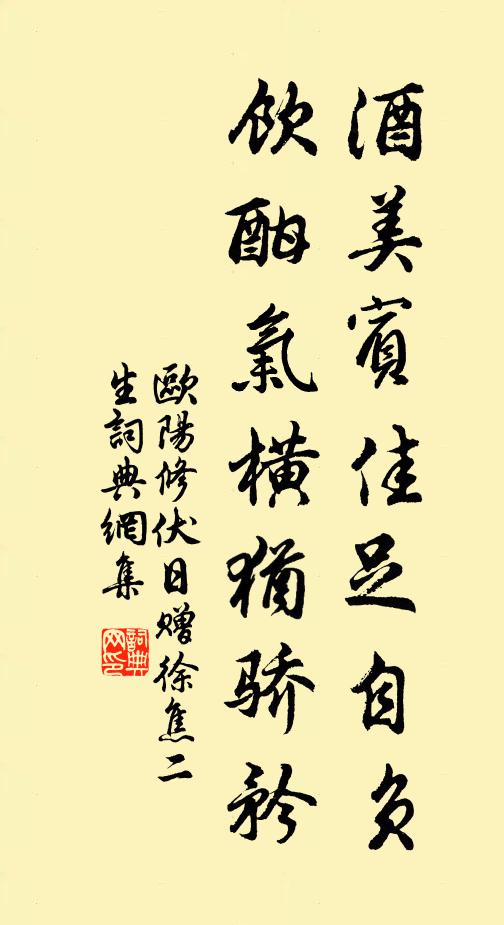 酒美賓佳足自負
飲酣氣橫猶驕矜
歐陽修伏日贈徐焦二
生詞典網集
詞典网印